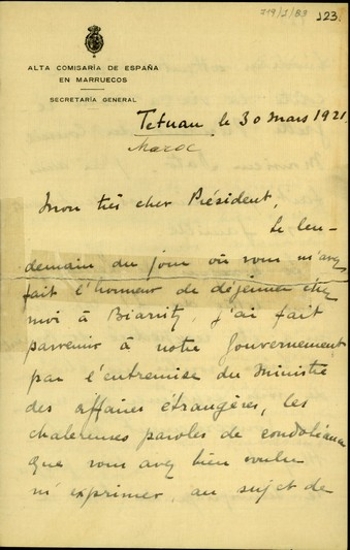 719/1/83
123.
ALTA COMISARÍA DE ESPAÑA
EN MARRUECOS
SECRETARÍA GENERAL
Tetuan, le 30 mars 1921
Maroc
Mon très cher Président,
Le len-
demain du jour où vous m'avez
fait l'honneur de déjeuner chez
moi à Biarritz, j'ai fait
parvenir à notre Gouvernement
par l'entremise du Ministre
des affaires étrangères, les
chaleureuses paroles de condoléance
que vous avez bien voulu
m'exprimer, au sujet de